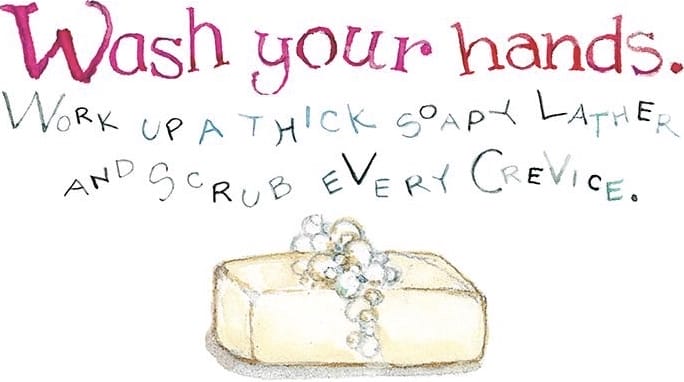 Wash your hands.
WORK UP A THICK SOAPY LATHER
AND SCRUB EVERY CREVICE.